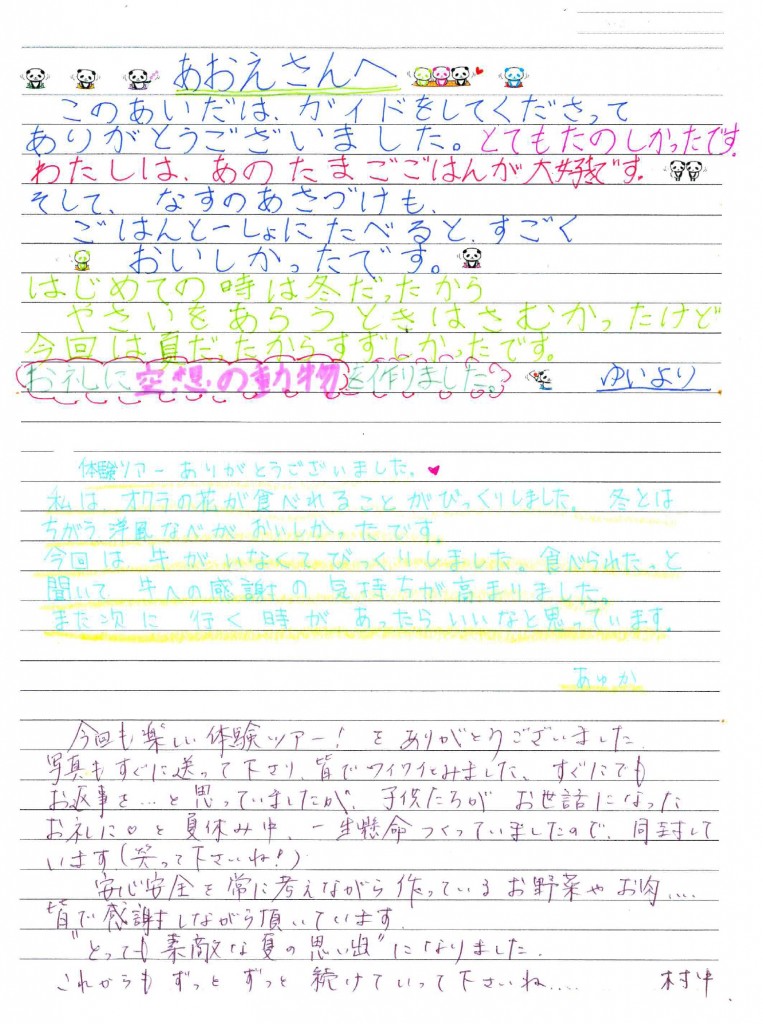 あおえさんへ
このあいだは、ガイドをしてくださって
ありがとうございました。とてもたのしかったです。
わたしは、あのたまごごはんが大好きです。
そして、なすのあさづけも、
ごはんと一しょにたべると、すごく
おいしかったです。
はじめての時は冬だったから
やさいをあらうときはさむかったけど
今回は夏だったからすずしかったです。
お礼に空想の動物を作りました。 ゆいより
体験ツアーありがとうございました。♥
私は、オクラの花が食べれることがびっくりしました。冬とは
ちがう洋風なべがおいしかったです。
今回は牛がいなくてびっくりしました。食べられたっと
聞いて牛への感謝の気持ちが高まりました。
また次に行く時があったらいいなと思っています。
あゆか
今回も楽しい体験ツアー!をありがとうございました。
写真もすぐに送って下さり、皆でワイワイとみました。すぐにでも
お返事を…と思っていましたが、子供たちがお世話になった
お礼に♡と夏休み中、一生懸命つくっていましたので、同封して
います(笑って下さいね!)
安心安全を常に考えながら作っているお野菜やお肉....
皆で感謝しながら頂いています。
"とっても素敵な夏の思い出"になりました。
これからもずっとずっと続けていって下さいね.... 村中